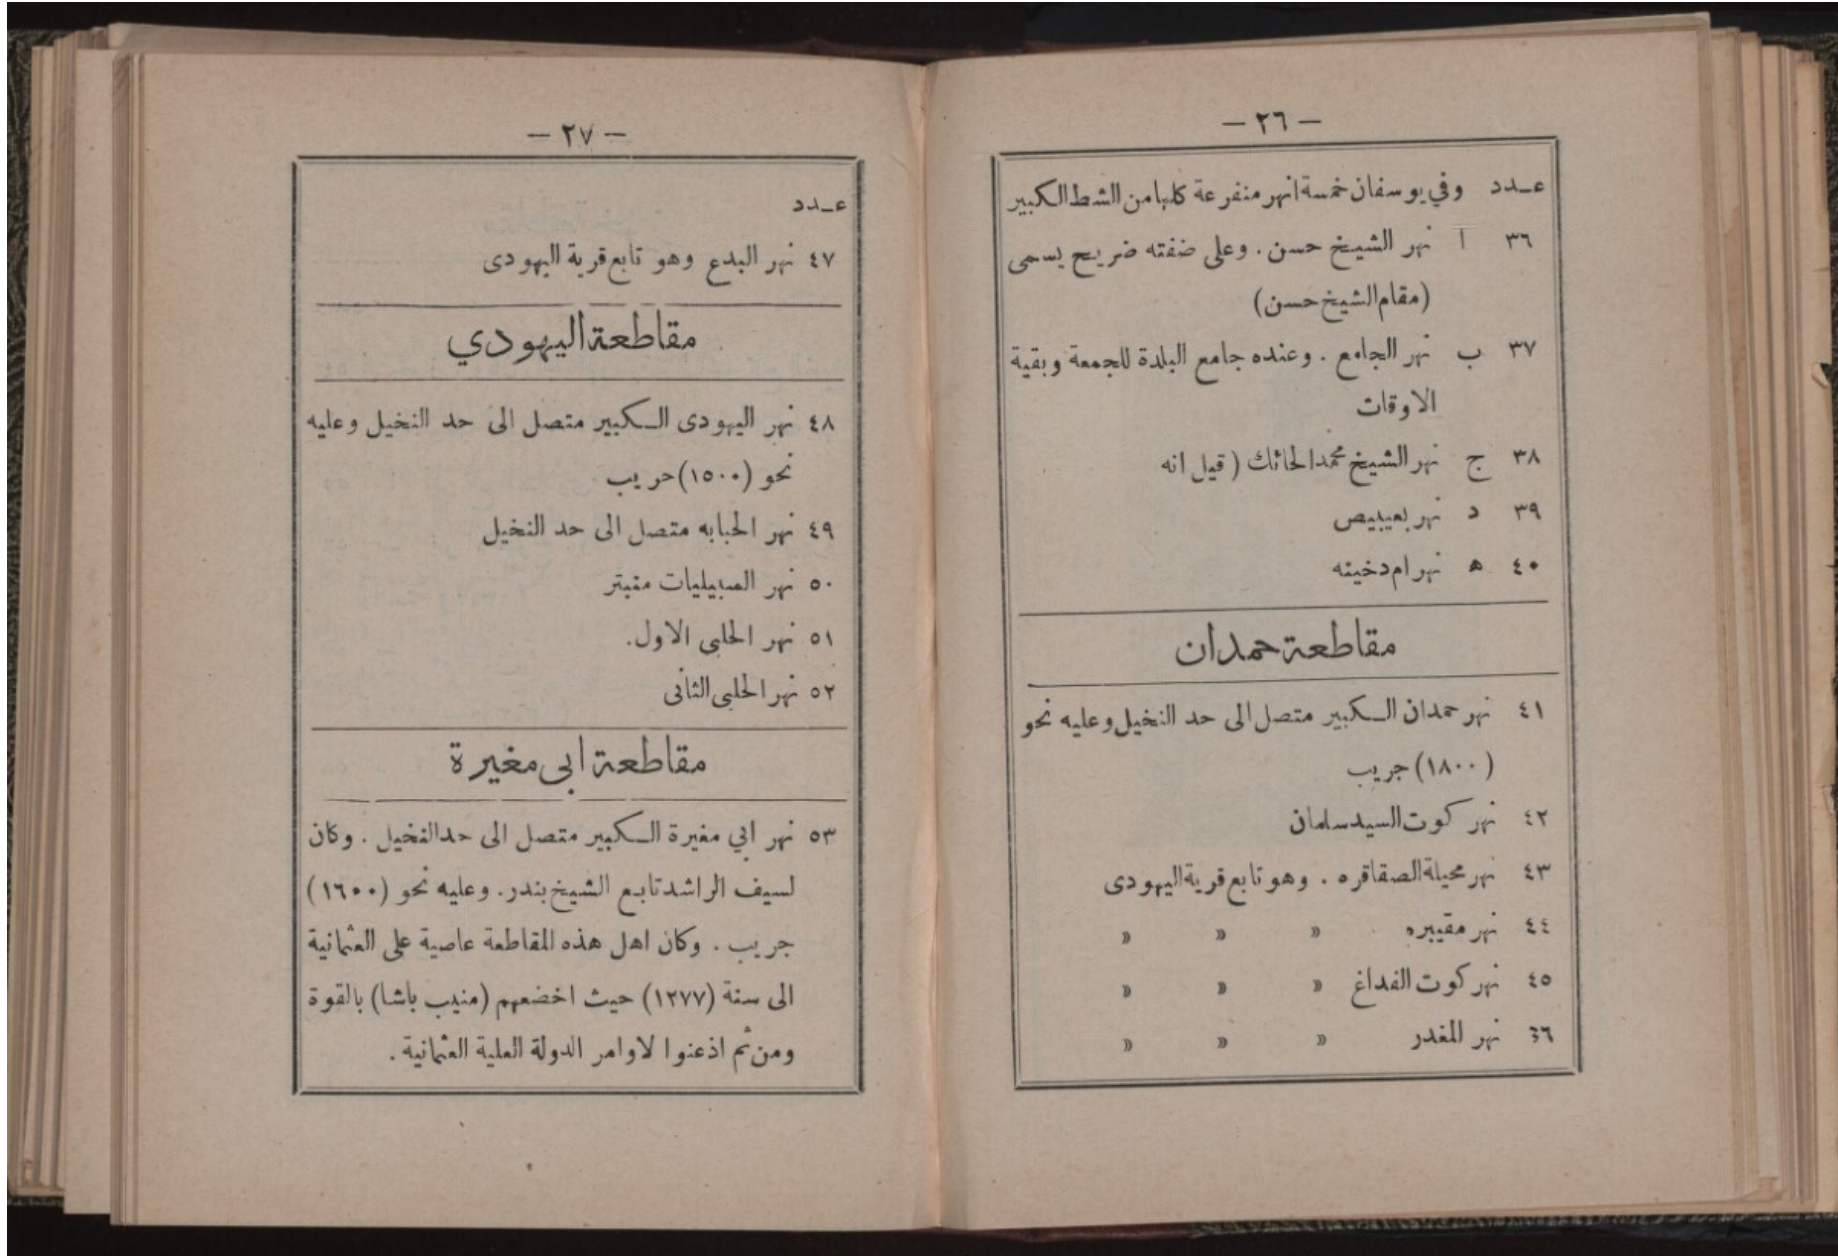 — ٢٦ —
عـدد وفي يوسفان خمسة انهر منفرعة كلها من الشط الكبير
٣٦ أ نهر الشيخ حسن . وعلى ضفته ضريح يسمى
(مقام الشيخ حسن)
٣٧ ب نهر الجامع . وعنده جامع البلدة للجمعة وبقية
الاوقات
٣٨ ج نهر الشيخ محمد الحائك ( قيل انه
٣٩ د نهر بعيبيص
٤٠ ه نهر ام دخينه
مقاطعة حمدان
٤١ نهر حمدان الـكبير متصل الى حد النخيل وعليه نحو
(١٨٠٠) جريب
٤٢ نهر كوت السيد سلمان
٤٣ نهر محيلة الصقاقره . وهو تابع قرية اليهودى
٤٤ نهر مقيبره » » »
٤٥ نهر كوت الفداغ » » »
٣٦ نهر المغدر » » »
— ٢٧ —
عـدد
٤٧ نهر البدع وهو تابع قرية اليهودى
مقاطعة اليهودي
٤٨ نهر اليهودى الـكبير متصل الى حد النخيل وعليه
نحو (١٥٠٠) حريب
٤٩ نهر الحبابه متصل الى حد النخيل
٥٠ نهر السبيليات منبتر
٥١ نهر الحلبى الاول.
٥٢ نهر الحلبى الثانى
مقاطعة ابى مغيرة
٥٣ نهر ابي مغيرة الـكبير متصل الى حد النخيل . وكان
لسيف الراشد تابع الشيخ بندر. وعليه نحو (١٦٠٠)
جريب . وكان اهل هذه المقاطعة عاصية على العثمانية
الى سنة (١٢٧٧) حيث اخضعهم (منيب باشا) بالقوة
ومن ثم اذعنوا لاوامر الدولة العلية العثمانية .